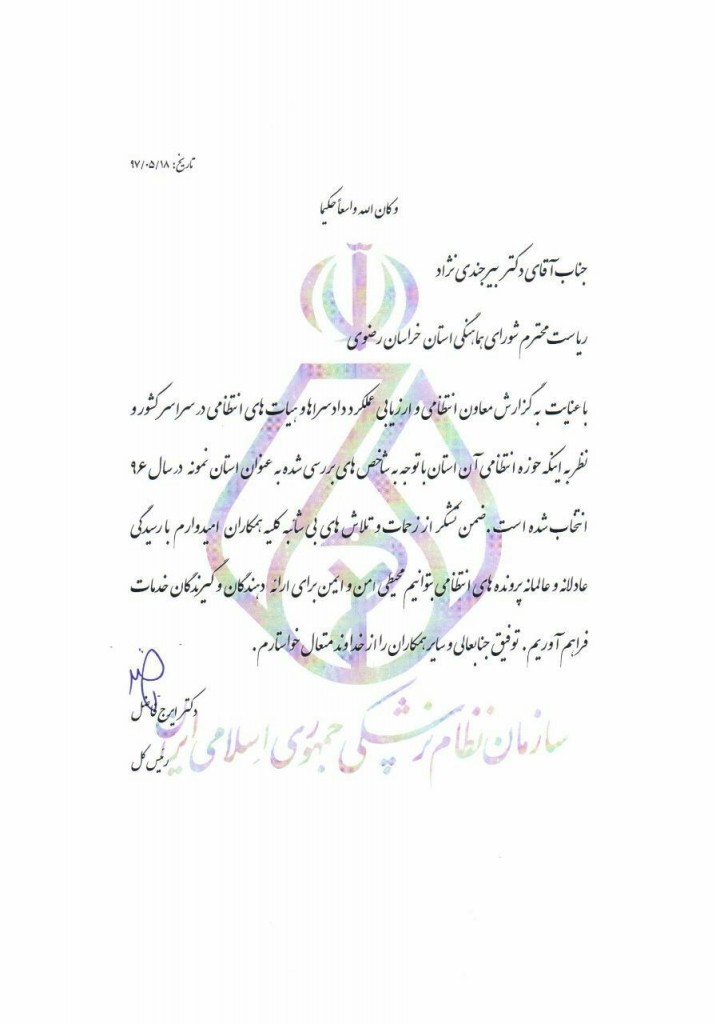 تاریخ: ۹۷/۰۵/۱۸
وکان الله واسعاً حکیما
جناب آقای دکتر بیرجندی نژاد
ریاست محترم شورای هماهنگی استان خراسان رضوی
با عنایت به گزارش معاون انتظامی و ارزیابی عملکرد دادسراها و هیات های انتظامی در سراسر کشور و
نظر به اینکه حوزه انتظامی آن استان با توجه به شاخص های بررسی شده به عنوان استان نمونه در سال ۹۶
انتخاب شده است. ضمن تشکر از زحمات و تلاش های بی شائبه کلیه همکاران امیدوارم با رسیدگی
عادلانه و عالمانه پرونده های انتظامی بتوانیم محیطی امن و ایمن برای ارائه دهندگان و گیرندگان خدمات
فراهم آوریم. توفیق جنابعالی و سایر همکاران را از خداوند متعال خواستارم.
دکتر ایرج فاضل
رئیس کل
سازمان نظام پزشکی جمهوری اسلامی ایران